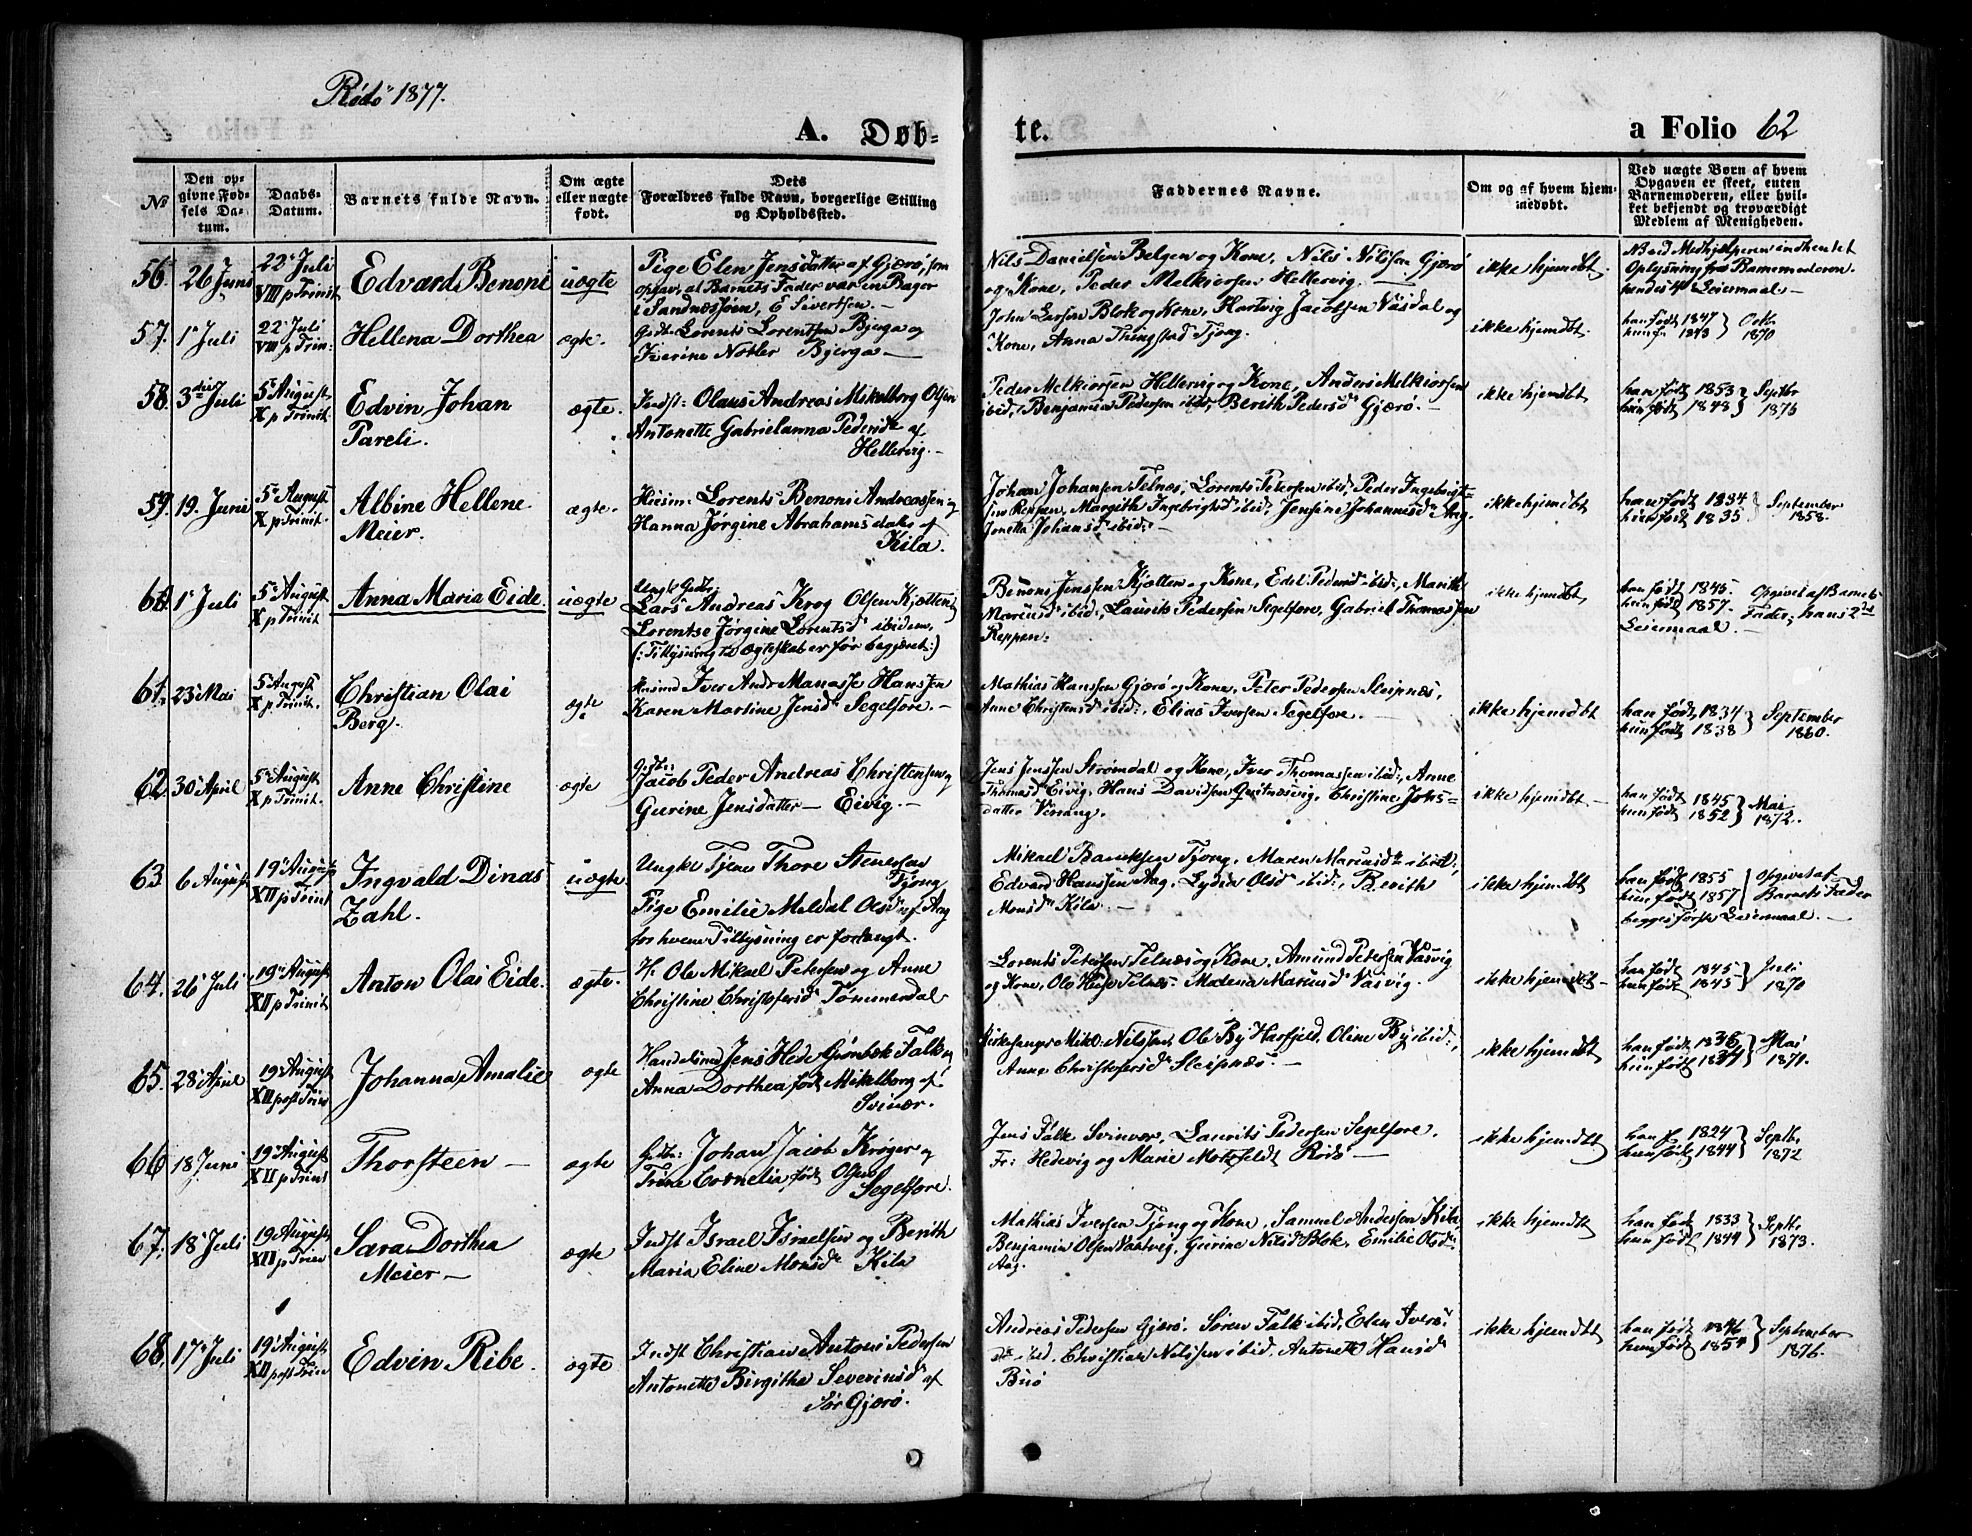 Rödö 1877.
A. Døb-
te.
a Folio 62
No
Den op-
givne Fød-
sels Da-
tum.
Daabs-
Datum.
Barnets fulde Navn.
Om ægte
eller uægte
født.
Dets
Forældres fulde Navn, borgerlige Stilling
og Opholdssted.
Faddernes Navne.
Om og af hvem hjem-
medøbt.
Ved uægte Børn af hvem
Opgaven er skeet, enten
Barnemoderen, eller hvil-
ket bekjendt og troværdigt
Medlem af Menigheden.
56. 26 Juni
22 Juli
VIII p Trinit
Edvard Benoni
uægte
Pige Elen Jensdatter af Gjærø, som
opgav, at Barnets Fader var en Bager
i Sandnæssjøen, E Sivertsen.
Nils Danielsen Bolgen og Kone, Nils Nilsen Gjærø
og Kone, Peder Melkiorsen Hellervig.
ikke hjemdbt.
NB ved Medhjelperen indhentet
Oplysning fra Barnemoderen
hendes 4 Leiermaal.
57. 1 Juli
22 Juli
VIII p Trin:
Hellena Dorthea
ægte.
Gdbr: Lorents Lorentsen Bjerga og
Bjerga
John Larsen Blok og Kone, Hartvig Jacobsen Vasdal og
Kone, Anna Thingstad Tjong.
ikke hjemdbt.
han født 1847
hun f. 1848
Oct.
1870
58. 3die Juli
5 August
X p Trinit
Edvin Johan
Pareli.
ægte.
Indst: Olaus Andreas Mikelborg Olsen
Antonette Gabrielanna Pedersdr af
Hellervig.
Peder Melkiorsen Hellervig og Kone, Anders Melkiorsen
ibid, Benjamin Pedersen ibid, Berith Pedersdr Gjærø.
ikke hjemdbt
han født 1853
hun født 1848
Septbr
1876
59. 19. Juni
5 August
X p Trinit.
Albine Hellene
Meier.
ægte.
Huusm: Lorents Benoni Andreassen og
Hanna Jørgine Abrahamsdatr af
Kila.
Johan Johansen Telnæs, Lorents Petersen ibid, Peder Ingebrigt-
sen Reppen, Margith Ingebrigtsd ibid, Jensine Johannesdr Aag.
Jonetta Johansd ibid.
ikke hjemdbt
han født 1834
hun født 1835
September
1858.
60. 1 Juli
5 August
X p Trinit
Anna Maria Eide.
uægte
Lars Andreas Krog Olsen Kjøtten og
Lorentse Jørgine Lorentsdr ibidem,
(: Tillysning til Ægteskab er før begjært :)
Benoni Jenssen Kjøtten og Kone, Edel Pedersd ibid, Marith
Mariusd ibid, Laurits Pedersen Segelfore, Gabriel Thomassen
Reppen.
ikke hjemdbt
han født 1845.
hun født 1857.
Leiermaal.
Opgivet af Barnets
Fader, hans 2det
61. 23 Mai
5 August
X p Trinit.
Christian Olai
Berg.
ægte
Huusmd Iver Andr Manasse Hanssen
Karen Martine Jensdr Segelfore
Mathias Hanssen Gjærø og Kone, Peter Pedersen Sleipnæs,
Anne Christensd ibid, Elias Iversen Segelfore.
ikke hjemdbt
han født 1834
hun født 1838
September
1860.
62 30 April
5 August
X p Trinit.
Anne Christine
ægte
Gdbr:
Jacob Peder Andreas Christensen og
Gurine Jensdatter Eivig.
Jens Jenssen Strømdal og Kone, Iver Thomassen ibid, Anne
Thomasd Eivig, Hans Davidsen Qvitnæsvig, Christine Johs-
datter Verrang.
ikke hjemdbt.
han født 1845
hun født 1852
Mai
1872.
63 6 August
19 August
XII p Trinit
Ingvald Dinas
Zahl.
uægte.
Ungke Tjene Thore Stenersen
Tjong
Pige Emilie Meldal Olsdr af Aag
for hvem Tillysning er forlangt.
Mikael Bendiksen Tjong, Maren Mariusdr ibid,
Edvard Hanssen Aag, Lydia Olsd ibid, Berith
Monsdr Kila.
ikke hjemdbt
han født 1855
hun født 1857
begges første Leiermaal.
opgivet af
Barnets Fader
64. 26 Juli
19 August
XII p Trinit
Anton Olai Eide.
ægte.
H: Ole Mikael Petersen og Anne
Christine Christofersdr Tømmerdal
Lorents Petersen Telnæs og Kone, Amund Petersen Vasvig
og Kone, Ole Telnes, Madena Mariusd Vasvig.
ikke hjemdbt
han født 1845
hun født 1845
Juli
1870
65. 28 April
19 August
XII post Trin
Johanna Amalie
ægte
Handelsmd Jens Hede Grønbek Falk og
Anna Dorthea født Mikelborg af
Svinvær.
Kirkesanger Mikl: Nilssen, Ole By Harfjeld, Oline By ibid,
Anne Christofersdr Sleipnæs.
ikke hjemdbt
han født 1836
hun født 1834
Mai
1871.
66 18 Juni
19 August
XII p Trinit
Thorsteen
ægte
Gdbr: Johan Jacob Krøger og
Trine Cornelia født Olsen
Segelfore.
Jens Falk Svinvær, Laurits Pedersen Segelfore.
Fr: Hedevig og Marie Motzfeldt Rødø
ikke hjemdbt
han f. 1824
hun født 1844
Septbr
1872
67. 18 Juli
19 August
XII p Trin
Sara Dorthea
Meier
ægte
Indst Israel Israelsen og Berith
Maria Eline Monsdr Kila
Mathias Iversen Tjong og Kone, Samuel Andersen Kila,
Benjamin Olsen Vasvig, Gurine Nilsd Blok, Emilie Olsd
Aag.
ikke hjemdbt
han født 1833
hun født 1844
Septbr
1873.
68. 17 Juli
19 August
XII post Trin
Edvin Ribe.
ægte
Indst Christian Antoni Pedersen
Antonette Birgitha Severinsdr af
Sør Gjærø.
Andreas Pedersen Gjærø, Søren Falk ibid, Elen Ivers-
dr ibid, Christian Nilssen ibid, Antonette Hansd
Buø
ikke hjemdbt
han født 1846
hun født 1854
September
1876.